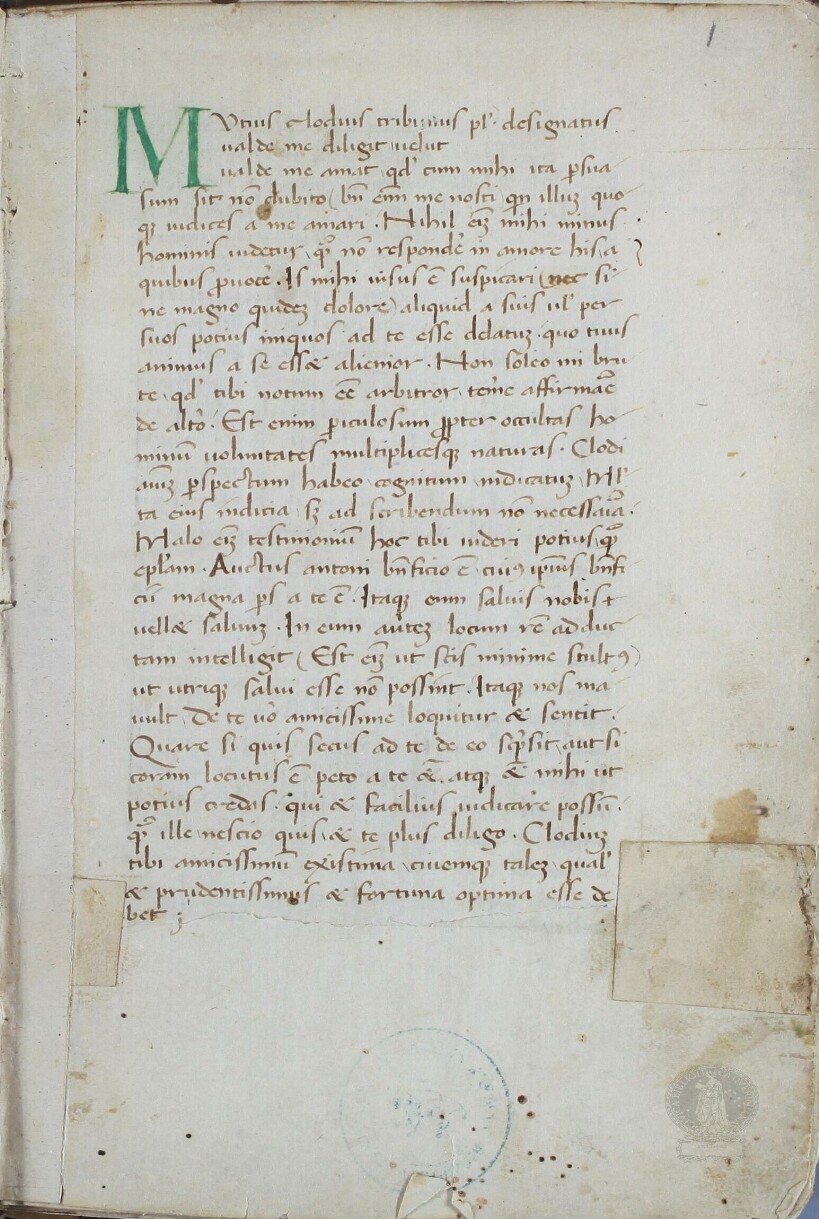 1
MVtius clodius tribunus pl· designatus
ualde me diligit uelut
ualde me amat· qd' cum mihi ita ꝑsua
sum sit nō dubito (bn̄ em̄ me nosti) qn̄ illuꝫ quo
qꝫ iudices a me amari · Nihil eīꝫ mihi minus
hominis uidetur, qͣ̄ nō respondē in amore his, a
quibus ꝓuocē · Is mihi uisus ē suspicari (nec si
ne magno quideꝫ dolore) aliquid a suis ul' per
suos potius iniquos ad te esse delatuꝫ · quo tuus
animus a se essæ alienior · Non soleo mi bru
te, qd' tibi notum eē arbitror, tem̄e affirmāē
de alt̄o · Est enim ꝑiculosum ꝓpter occultas ho
minū uoluntates multiplicesqꝫ naturas · Clodi
aīuꝫ ꝑspectum habeo, cognitum, iudicatuꝫ, Ml'
ta eius indicia, sꝫ ad scribendum nō necessaīa ·
Malo eīꝫ testimoniū hoc tibi uideri potius, qͣ̄
epl'am · Auctus antoni bn̄ficio ē, cuiꝰ ip̄ius bn̄fi
cii magna ꝑs a te ē · Itaqꝫ eum saluis nobis
uellæ saluuꝫ · In eum auteꝫ locum rē adduc
tam intelligit (Est eīꝫ ut scis minime stultꝰ)
ut utriqꝫ salui esse nō possint · Itaqꝫ nos ma
uult, De te uō amicissime loquitur & sentit ·
Quare si quis secus ad te de eo scp̄sit, aut si
coram locutus ē, peto a te &̄, atqꝫ & mihi ut
potius credas · qui & facilius iudicare possū ·
qͣ̄ ille, nescio quis, & te plus diligo · Clodiuꝫ
tibi amicissimū existima, ciuemqꝫ taleꝫ, qual'
& prudentissimus & fortuna optima esse de
bet ;